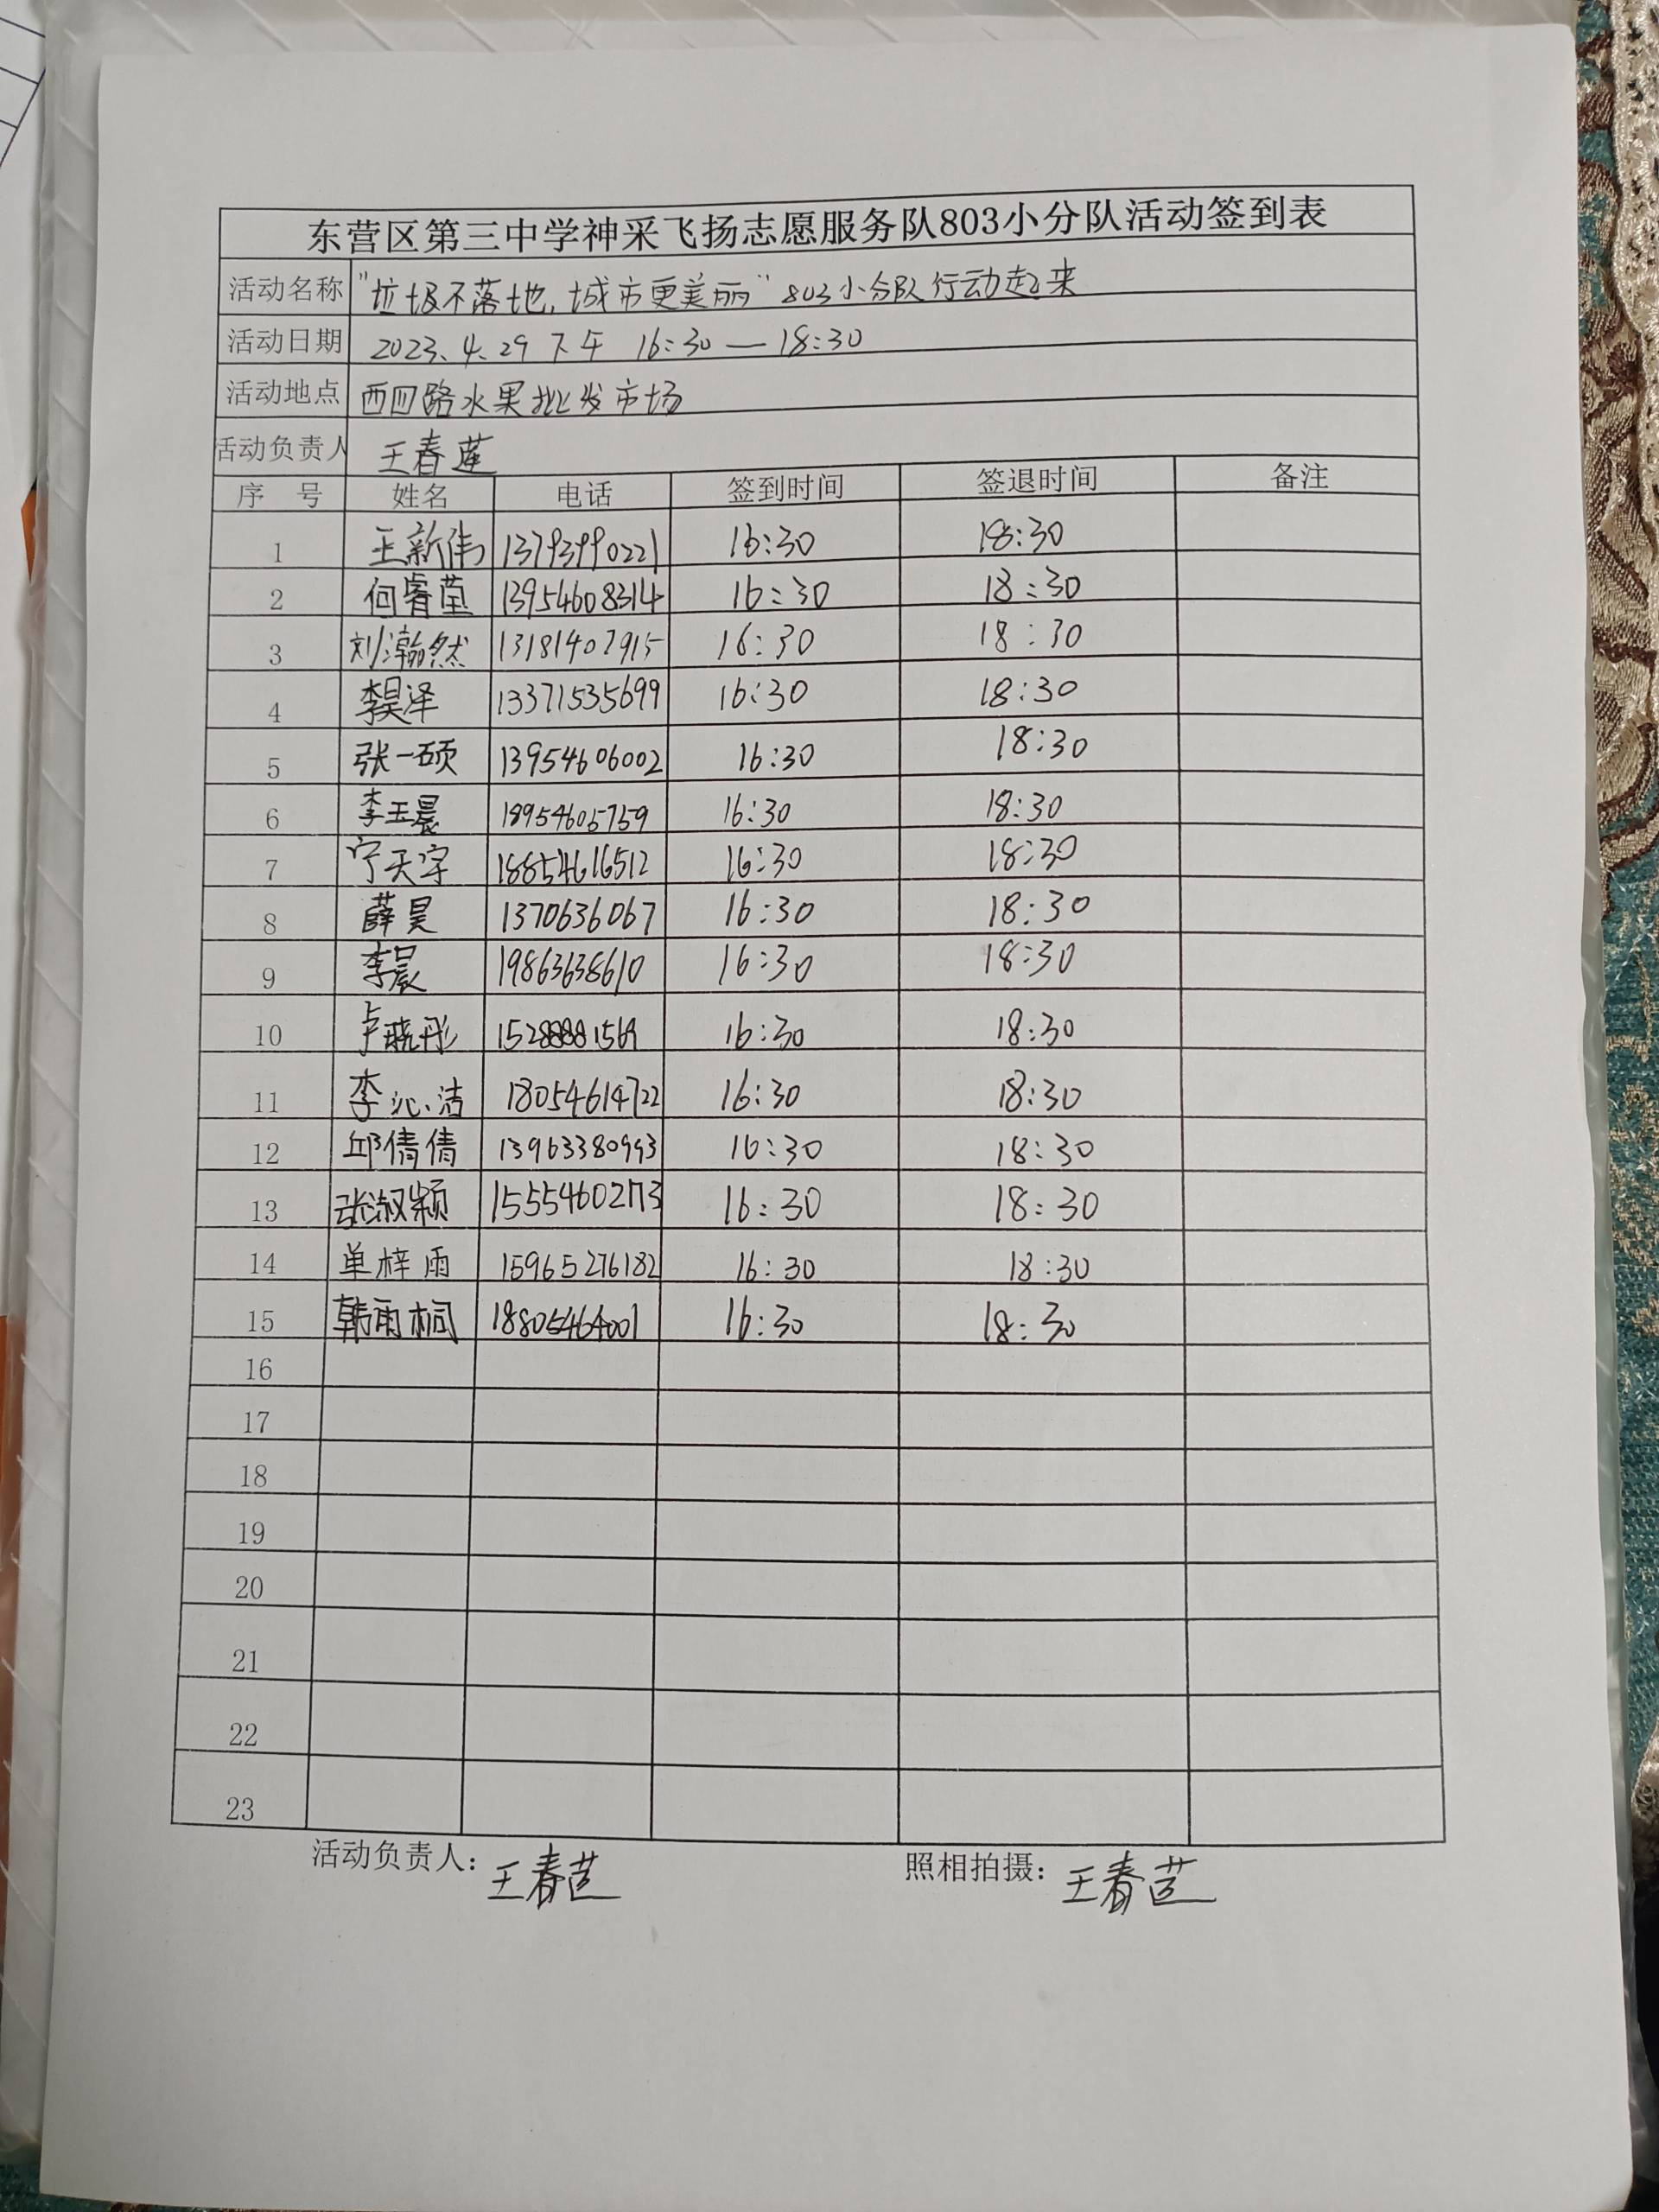 东营区第三中学神采飞扬志愿服务队803小分队活动签到表
活动名称 "垃圾不落地,城市更美丽"803小分队行动起来
活动日期 2023.4.29 下午 16:30—18:30
活动地点 西四路水果批发市场
活动负责人 王春莲
序 号 姓名 电话 签到时间 签退时间 备注
1 王新伟 13793990221 16:30 18:30
2 何睿莹 13954608314 16:30 18:30
3 刘瀚然 13181407915 16:30 18:30
4 李昊泽 13371535699 16:30 18:30
5 张一硕 13954606002 16:30 18:30
6 李玉晨 18954605759 16:30 18:30
7 宁天宇 18854616512 16:30 18:30
8 薛昊 1370636067 16:30 18:30
9 李晨 19863638610 16:30 18:30
10 卢晓彤 16:30 18:30
11 李沁洁 18054614722 16:30 18:30
12 邱倩倩 13963380993 16:30 18:30
13 张淑颖 15554602773 16:30 18:30
14 单梓雨 15965276182 16:30 18:30
15 韩雨桐 18805464001 16:30 18:30
16
17
18
19
20
21
22
23
活动负责人: 王春莲 照相拍摄: 王春莲